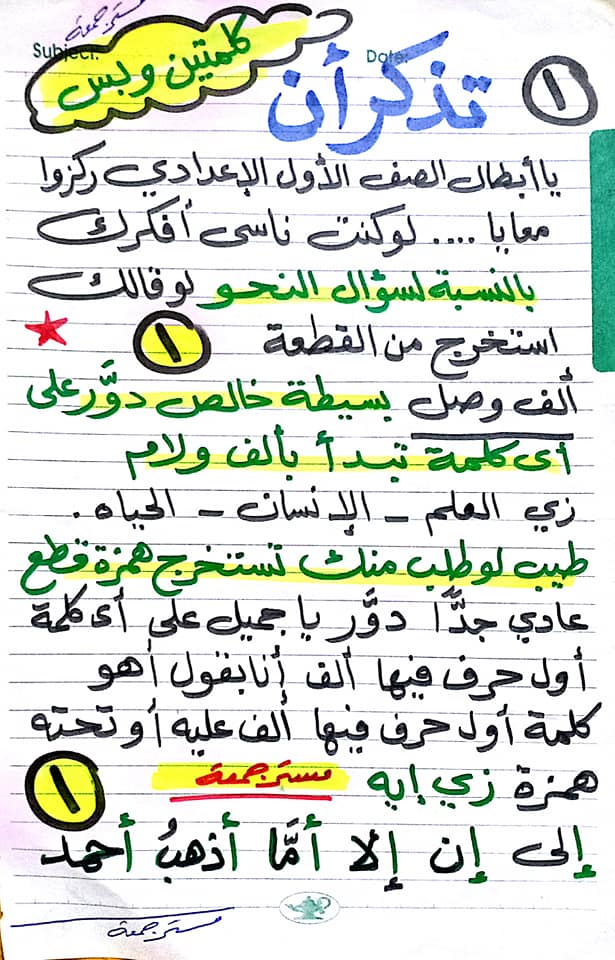 مستر جمعة
Subject:
Date:
كلمتين وبس
تذكر أن
١
يا أبطال الصف الأول الإعدادي ركزوا
معايا .... لو كنت ناسى أفكرك
بالنسبة لسؤال النحو لو قالك
استخرج من القطعة ١
ألف وصل بسيطة خالص دوَّر على
أى كلمة تبدأ بألف ولام
زي العلم - الإنسان - الحياه .
طيب لو طلب منك تستخرج همزة قطع
عادي جدًّا دوَّر يا جميل على أى كلمة
أول حرف فيها ألف أنا بقول أهو
كلمة أول حرف فيها ألف عليه أو تحته
همزة زي إيه مستر جمعة
١
إلى إن إلا أمَّا أذهبُ أحمد
مستر جمعة